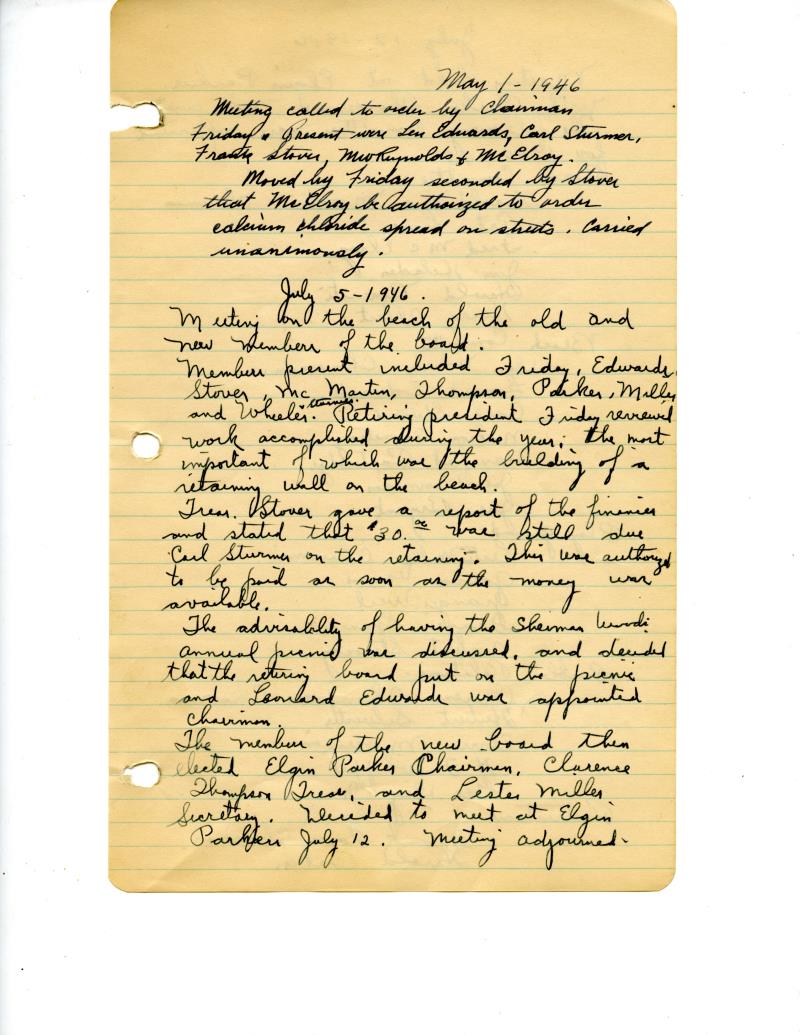 May 1 - 1946
Meeting called to order by Chairman
Friday. Present were Len Edwards, Carl Sturmer,
Frank Stover, Reynolds & McElroy.
Moved by Friday seconded by Stover
that McElroy be authorized to order
calcium chloride spread on streets. Carried
unanimously.
July 5 - 1946.
Meeting on the beach of the old and
new members of the board.
Members present included Friday, Edwards,
Stover, Mc Martin, Thompson, Parker, Miller
Sturmer.
and Wheeler. Retiring president Friday reviewed
work accomplished during the year; the most
important of which was the building of a
retaining wall on the beach.
Treas. Stover gave a report of the finances
and stated that $30.00 was still due
Carl Sturmer on the retaining. This was authorized
to be paid as soon as the money was
available.
The advisability of having the Sherman Woods
annual picnic was discussed, and decided
that the retiring board put on the picnic
and Leonard Edwards was appointed
chairman.
The members of the new board then
elected Elgin Parker Chairman, Clarence
Thompson Treas, and Lester Miller
Secretary. Decided to meet at Elgin
Parkers July 12. Meeting adjourned.